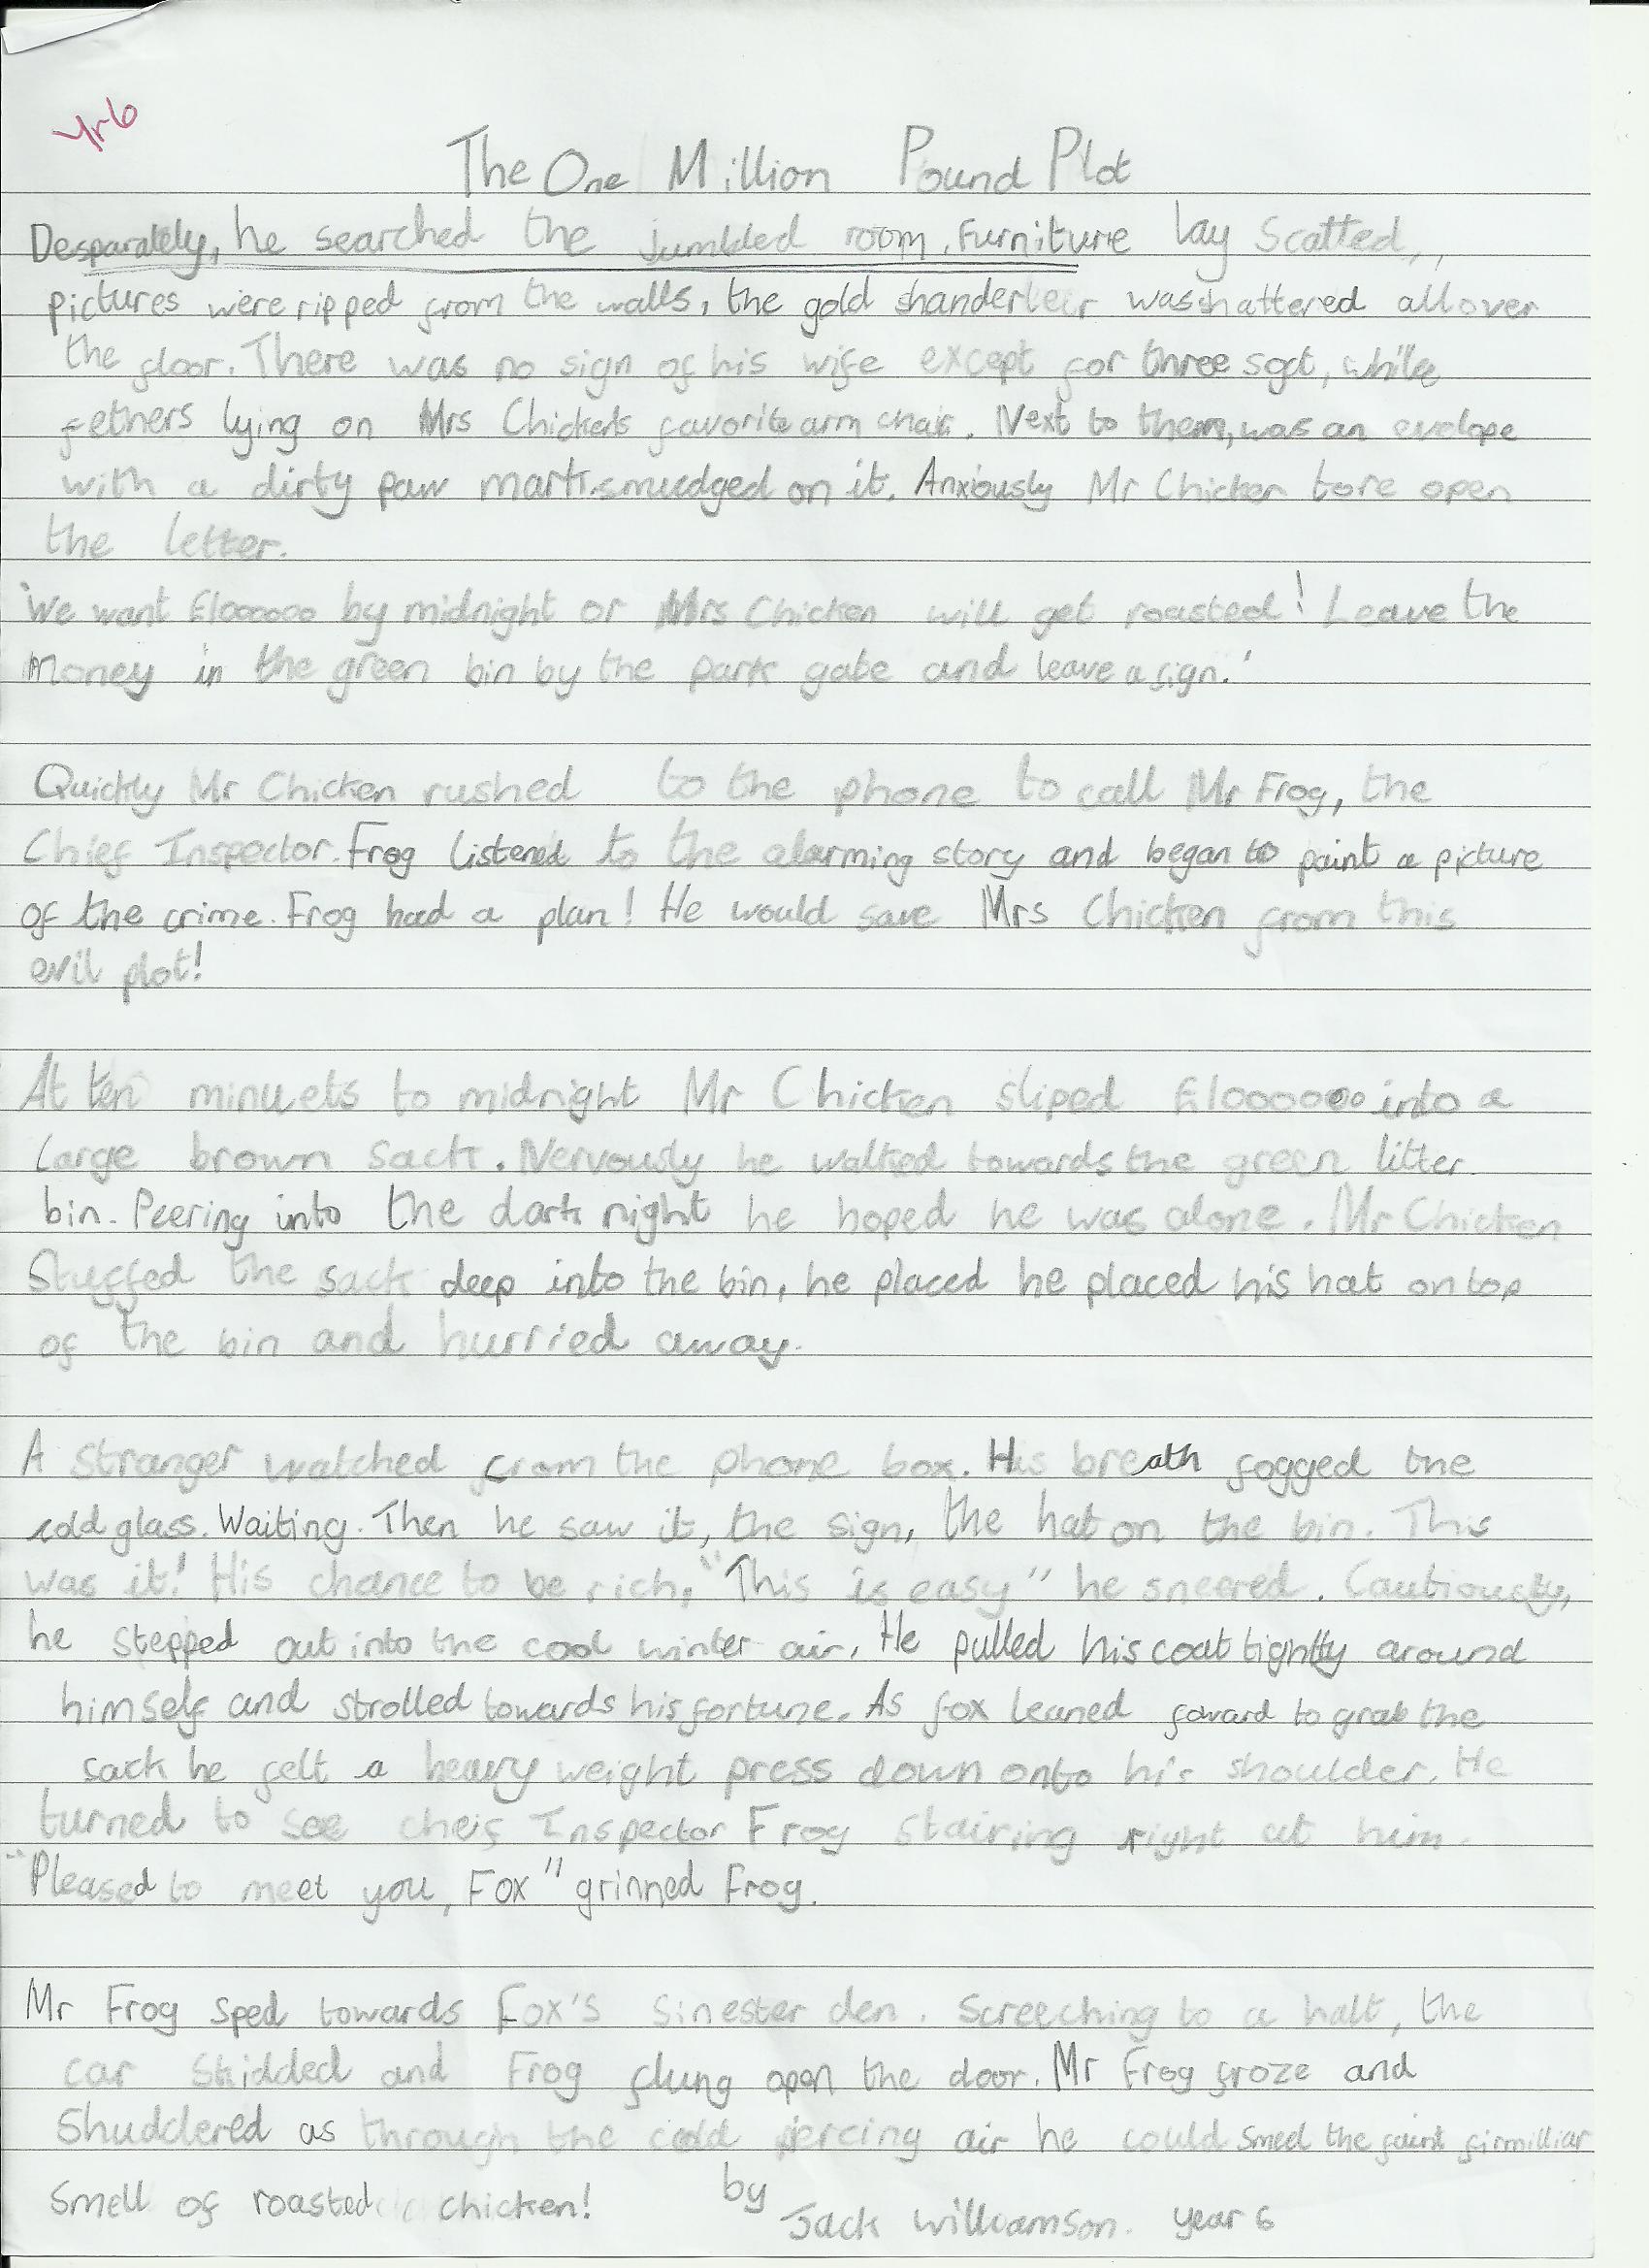 Yr6
The One Million Pound Plot
Desparately, he searched the jumbled room. Furniture lay scatted,
pictures were ripped from the walls, the gold shanderleir was shattered all over
the floor. There was no sign of his wife except for three soft, while
fethers lying on Mrs Chickens favorite arm chair. Next to them, was an evelope
with a dirty paw mark smudged on it. Anxiously Mr Chicken tore open
the letter.
'We want £1000000 by midnight or Mrs Chicken will get roasted! Leave the
money in the green bin by the park gate and leave a sign.'
Quickly Mr Chicken rushed to the phone to call Mr Frog, the
Chief Inspector. Frog listened to the alarming story and began to paint a picture
of the crime. Frog had a plan! He would save Mrs Chicken from this
evil plot!
At ten minuets to midnight Mr Chicken sliped £1000000 into a
large brown sack. Nervously he walked towards the green litter
bin. Peering into the dark night he hoped he was alone. Mr Chicken
Stuffed the sack deep into the bin, he placed he placed his hat on top
of the bin and hurried away.
A stranger watched from the phone box. His breath fogged the
cold glass. Waiting. Then he saw it, the sign, the hat on the bin. This
was it! His chance to be rich, "This is easy" he sneered. Cautiously,
he stepped out into the cool winter air. He pulled his coat tightly around
himself and strolled towards his fortune. As fox leaned foward to grab the
sack he felt a heavy weight press down onto his shoulder. He
turned to see cheif Inspector Frog stairing right at him.
"Pleased to meet you, Fox" grinned Frog.
Mr Frog sped towards Fox's sinester den. Screeching to a halt, the
car skidded and Frog flung open the door. Mr Frog froze and
shuddered as through the cold piercing air he could smell the faint firmilliar
smell of roasted chicken!
by
Jack Williamson. year 6